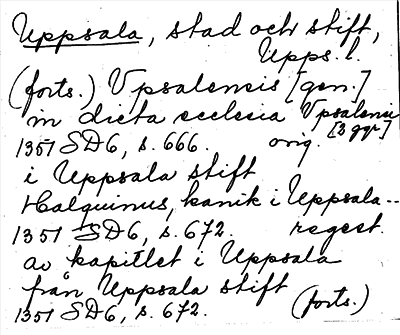 Uppsala, stad och stift,
Upps. l.
(forts.) Vpsalensis [gen.]
in dicta ecclesia Vpsalensi
1351 SD6, s. 666. orig. [3 ggr]
i Uppsala stift
Halquinus, kanik i Uppsala --
1351 SD6, s. 672. regest.
av kapitlet i Uppsala
från Uppsala stift
1351 SD6, s. 672. (forts.)